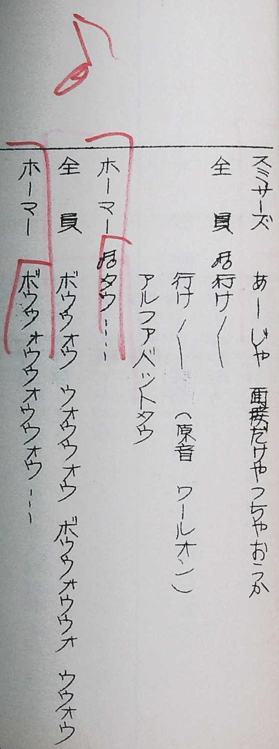 スミサーズ　あーじゃ　面接だけやっちゃおうか
全　員　行け〳〵
行け〳〵　（原音　ワールオン）
アルファベットタウ
ホーマー　タウ・・・
全　員　ボウウォウ　ウォウウォウ　ボウウォウウォ　ウウォウ
ホーマー　ボウウォウウォウウォウ・・・